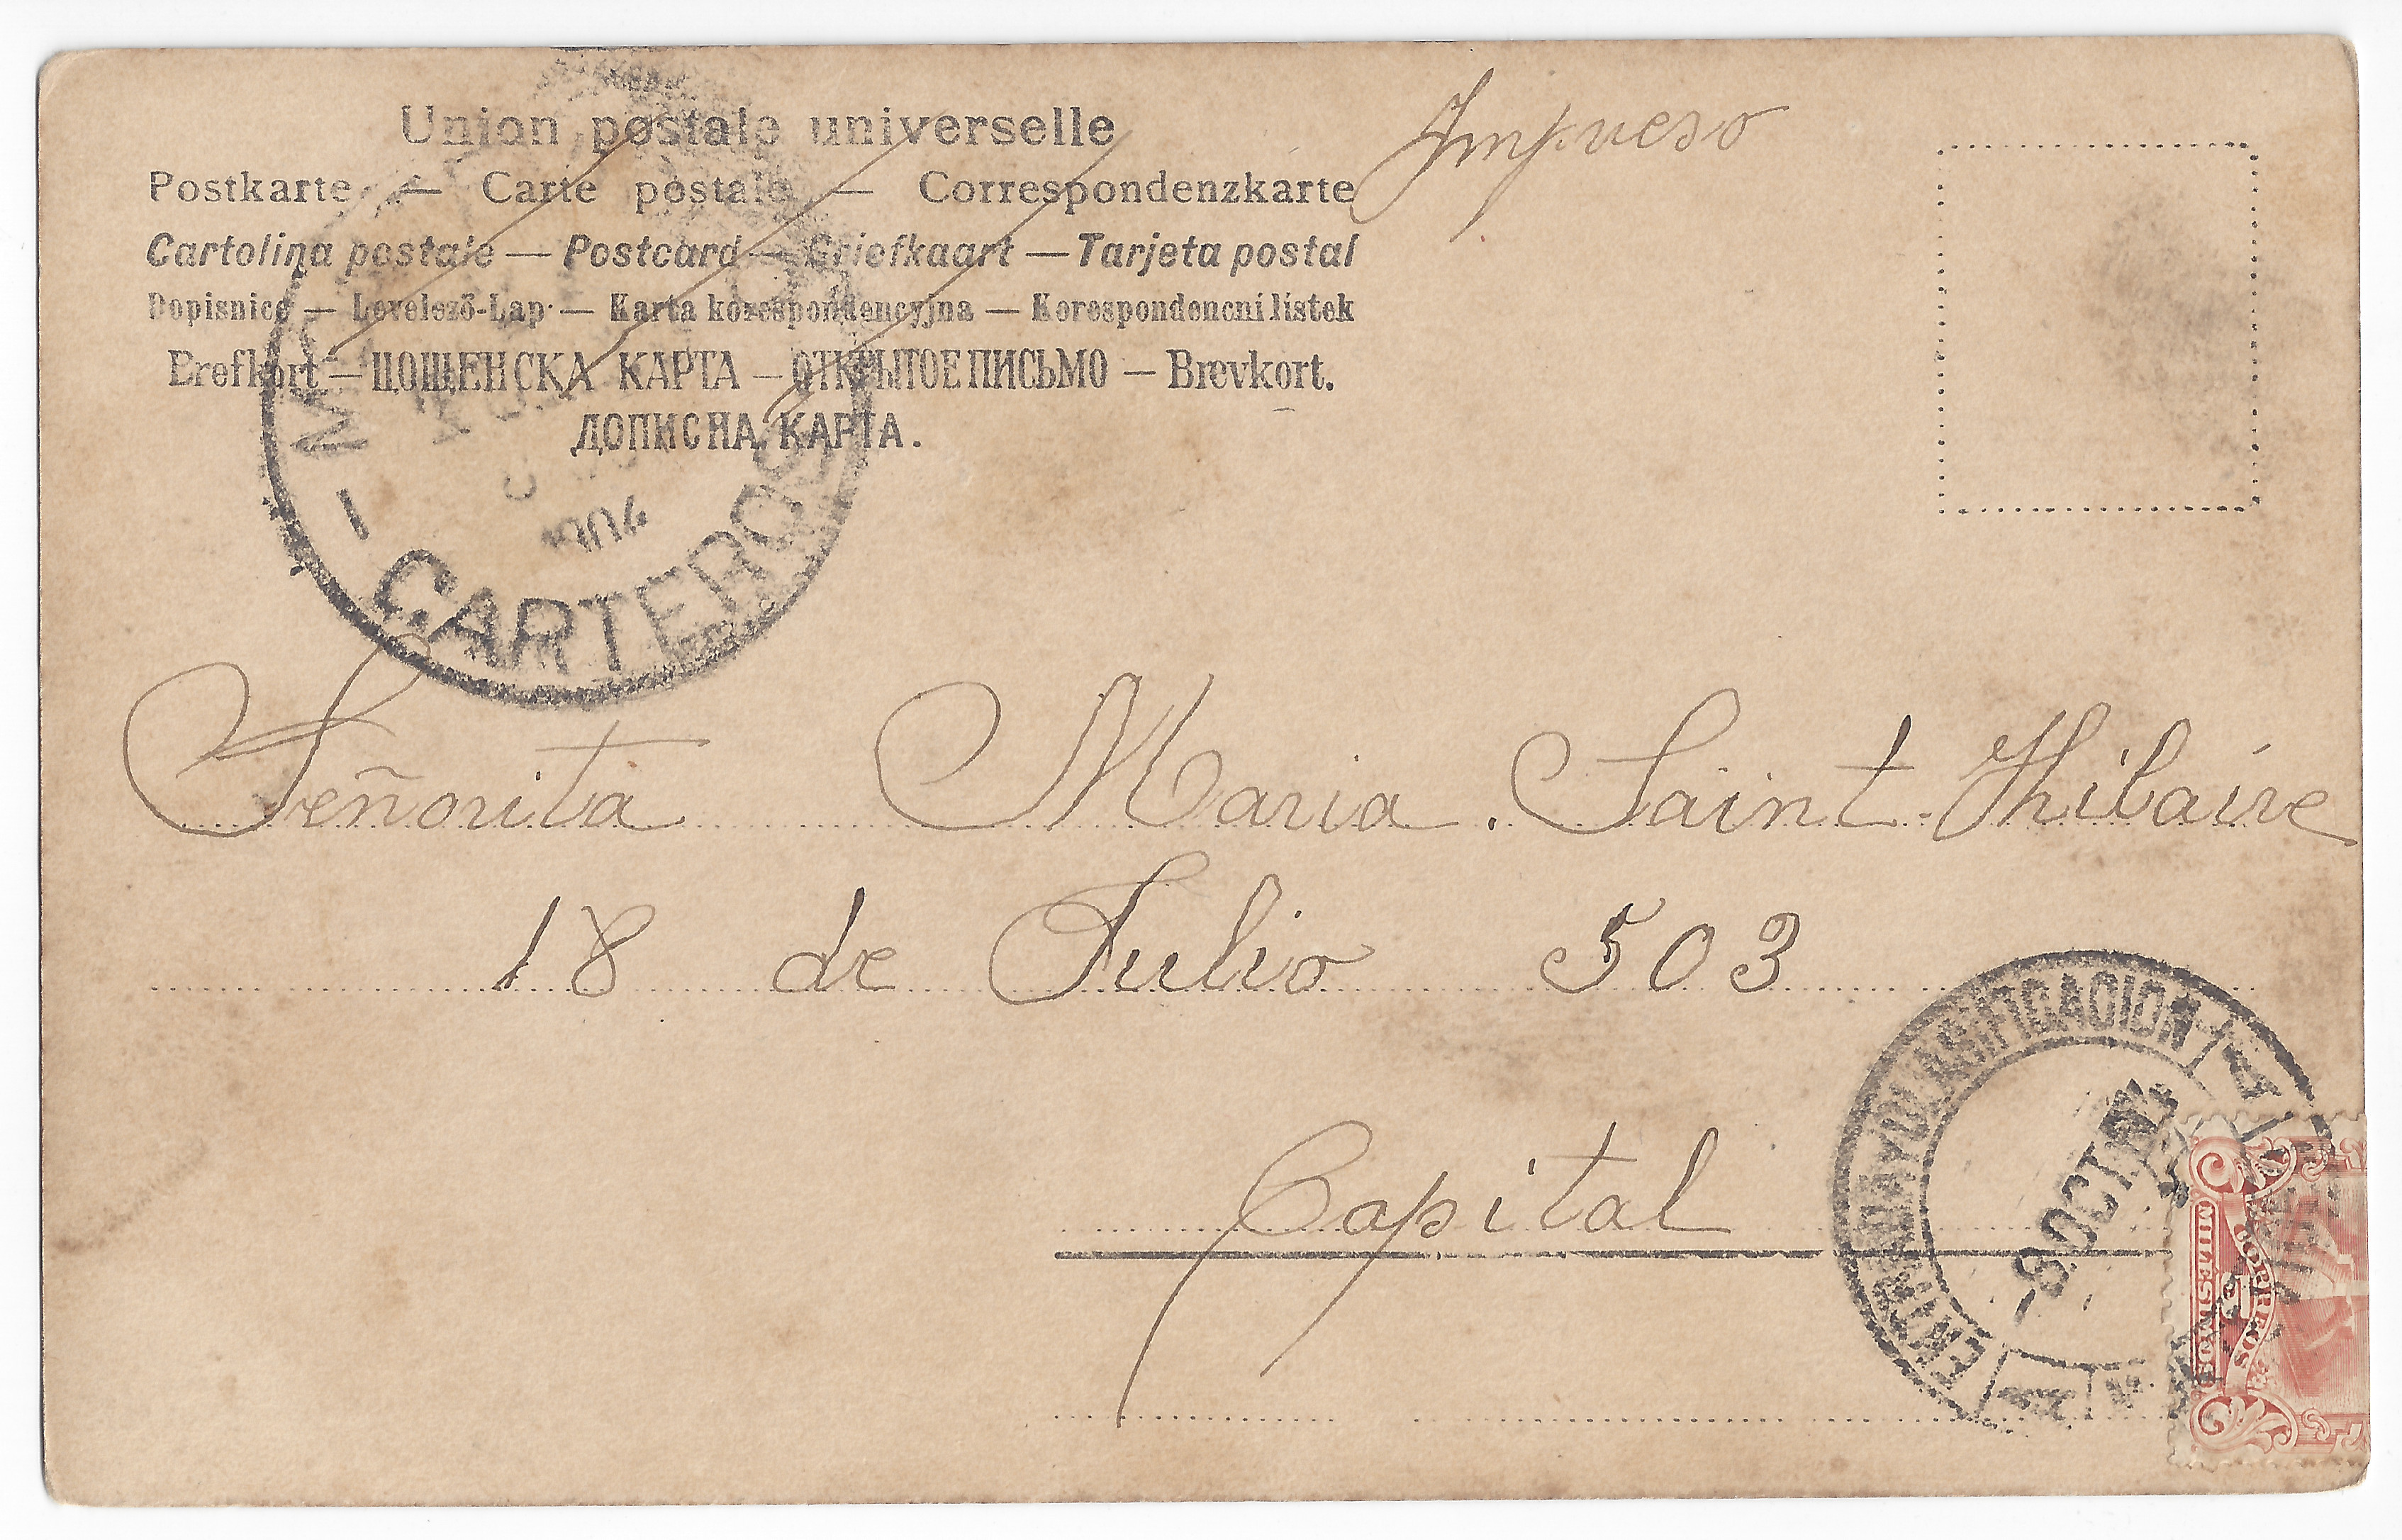 Union postale universelle
Impreso
Postkarte — Carte postale — Correspondenzkarte
Cartolina postale — Postcard — Briefkaart — Tarjeta postal
Dopisnice — Levelező-Lap — Karta korespondencyjna — Korespondencni listek
Brefkort — ЦОЩЕНСКА КАРТА — ОТКРЫТОЕ ПИСЬМО — Brevkort.
ДОПИСНА КАРТА.
1904
CARTEROS
Señorita Maria Saint Hilaire
18 de Julio 503
Capital
ENTRADA Y CLASIFICACION
-8 OCT
CORREOS
5
MILESIMOS